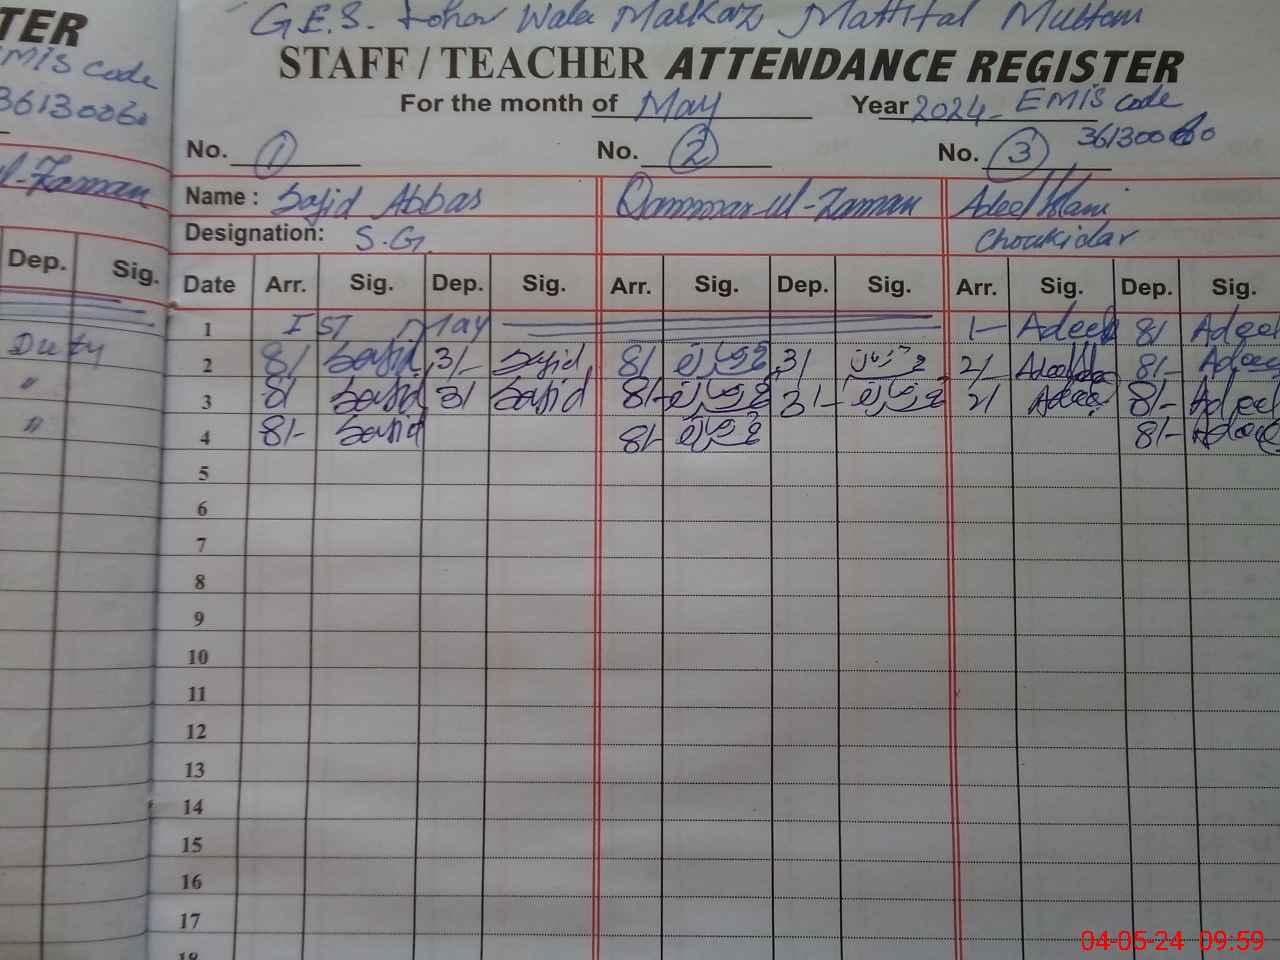 TER
EMIS code
36130060
ul-Zaman
Dep. Sig.
Duty
"
"
G.E.S. Lohar Wala Markaz Mattital Multan
STAFF / TEACHER ATTENDANCE REGISTER
For the month of May Year 2024 EMIS code
36130060
No. 1 No. 2 No. 3
Name : Sajid Abbas Qammar-ul-Zaman Adeel
Designation: S.G. Choukidar
Date Arr. Sig. Dep. Sig. Arr. Sig. Dep. Sig. Arr. Sig. Dep. Sig.
1 IST May 1- Adeel 8/ Adeel
2 8/ Sajid 3/- Sajid 8/ 3/ 2/ Adeel 8/- Adeel
3 8/ Sajid 3/ Sajid 8/- 3/- 2/ Adeel 8/- Adeel
4 8/- Sajid 8/- 8/- Adeel
5
6
7
8
9
10
11
12
13
14
15
16
17
18
04-05-24 09:59